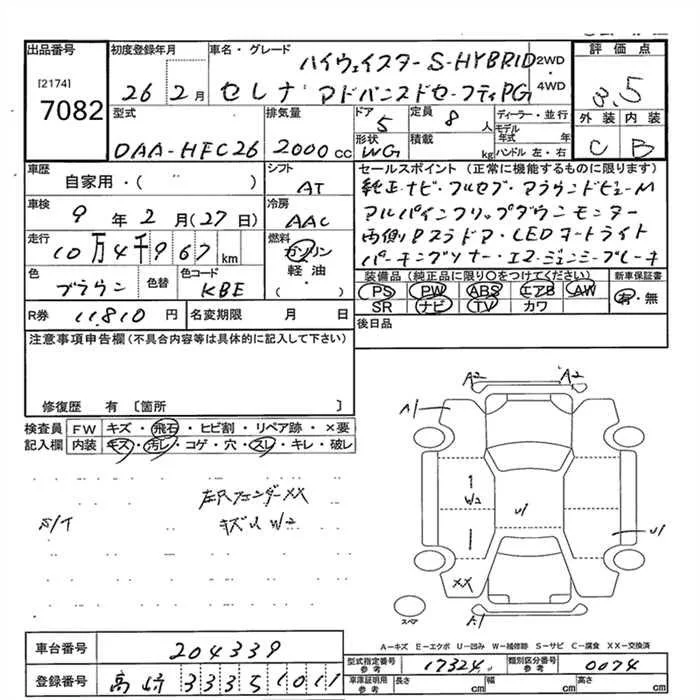 出品番号 初度登録年月 車名・グレード 評価点
[2174] ハイウェイスター S-HYBRID 2WD
7082 26 2月 セレナ アドバンスドセーフティPG 4WD 3.5
型式 排気量 ドア 5 定員 8人 ディーラー・並行 外装 内装
モデル年式 年
DAA-HFC26 2000cc 形状 WG 積載 kg ハンドル 左・右 C B
車歴 自家用・( ) シフト AT セールスポイント(正常に機能するものに限ります)
純正ナビ・フルセグ・アラウンドビューM
車検 9年2月(27日) 冷房 AAC アルパインフリップダウンモニター
走行 10万4千967km 燃料 ガソリン 両側Pスラドア・LEDヘッドライト
軽油・( )
色 ブラウン 色替 色コード KBE パーキングソナー・エマージェンシーブレーキ
装備品(純正品に限り○をつけてください) 新車保証書
PS PW ABS エアB AW 有・無
SR ナビ TV カワ
R券 11,810円 名変期限 月 日 後日品
注意事項申告欄(不具合内容等は具体的に記入して下さい)
修復歴 有 〔箇所 〕
検査員 FW キズ・飛石・ヒビ割・リペア跡・×要
記入欄 内装 キズ・汚レ・コゲ・穴・スレ・キレ・破レ
A2 A2
A1
左Rフェンダー XX
キズU W2
S/T
W2
U1
U1
XX
A1
スペア
A-キズ E-エクボ U-凹み W-補修跡 S-サビ C-腐食 XX-交換済
車台番号 204339
型式指定番号 参考 17324 類別区分番号 参考 0074
登録番号 高崎 333 5 1011
車庫証明用 参考 長さ cm 幅 cm 高さ cm